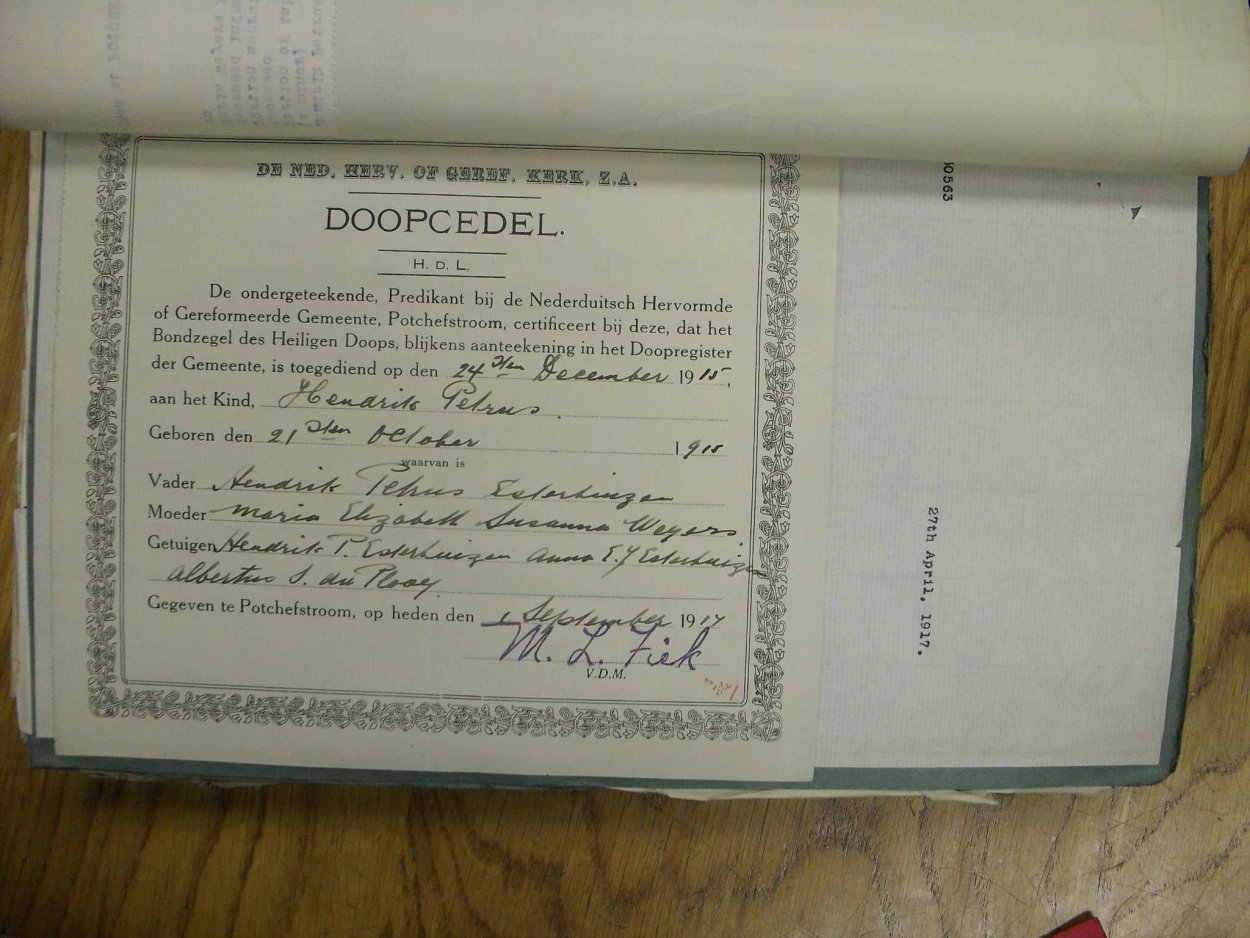 DE NED. HERV. OF GEREF. KERK, Z.A.
DOOPCEDEL.
H. D. L.
De ondergeteekende, Predikant bij de Nederduitsch Hervormde
of Gereformeerde Gemeente, Potchefstroom, certificeert bij deze, dat het
Bondzegel des Heiligen Doops, blijkens aanteekening in het Doopregister
der Gemeente, is toegediend op den 24sten December 1915,
aan het Kind, Hendrik Petrus.
Geboren den 21sten October 1915
waarvan is
Vader Hendrik Petrus Esterhuizen
Moeder Maria Elizabeth Susanna Weyers.
Getuigen Hendrik P. Esterhuizen Anna E. J Esterhuizen
Albertus S. du Plooy.
Gegeven te Potchefstroom, op heden den 1 September 1917
M. L. Fick
V.D.M.
0563
27th April, 1917.